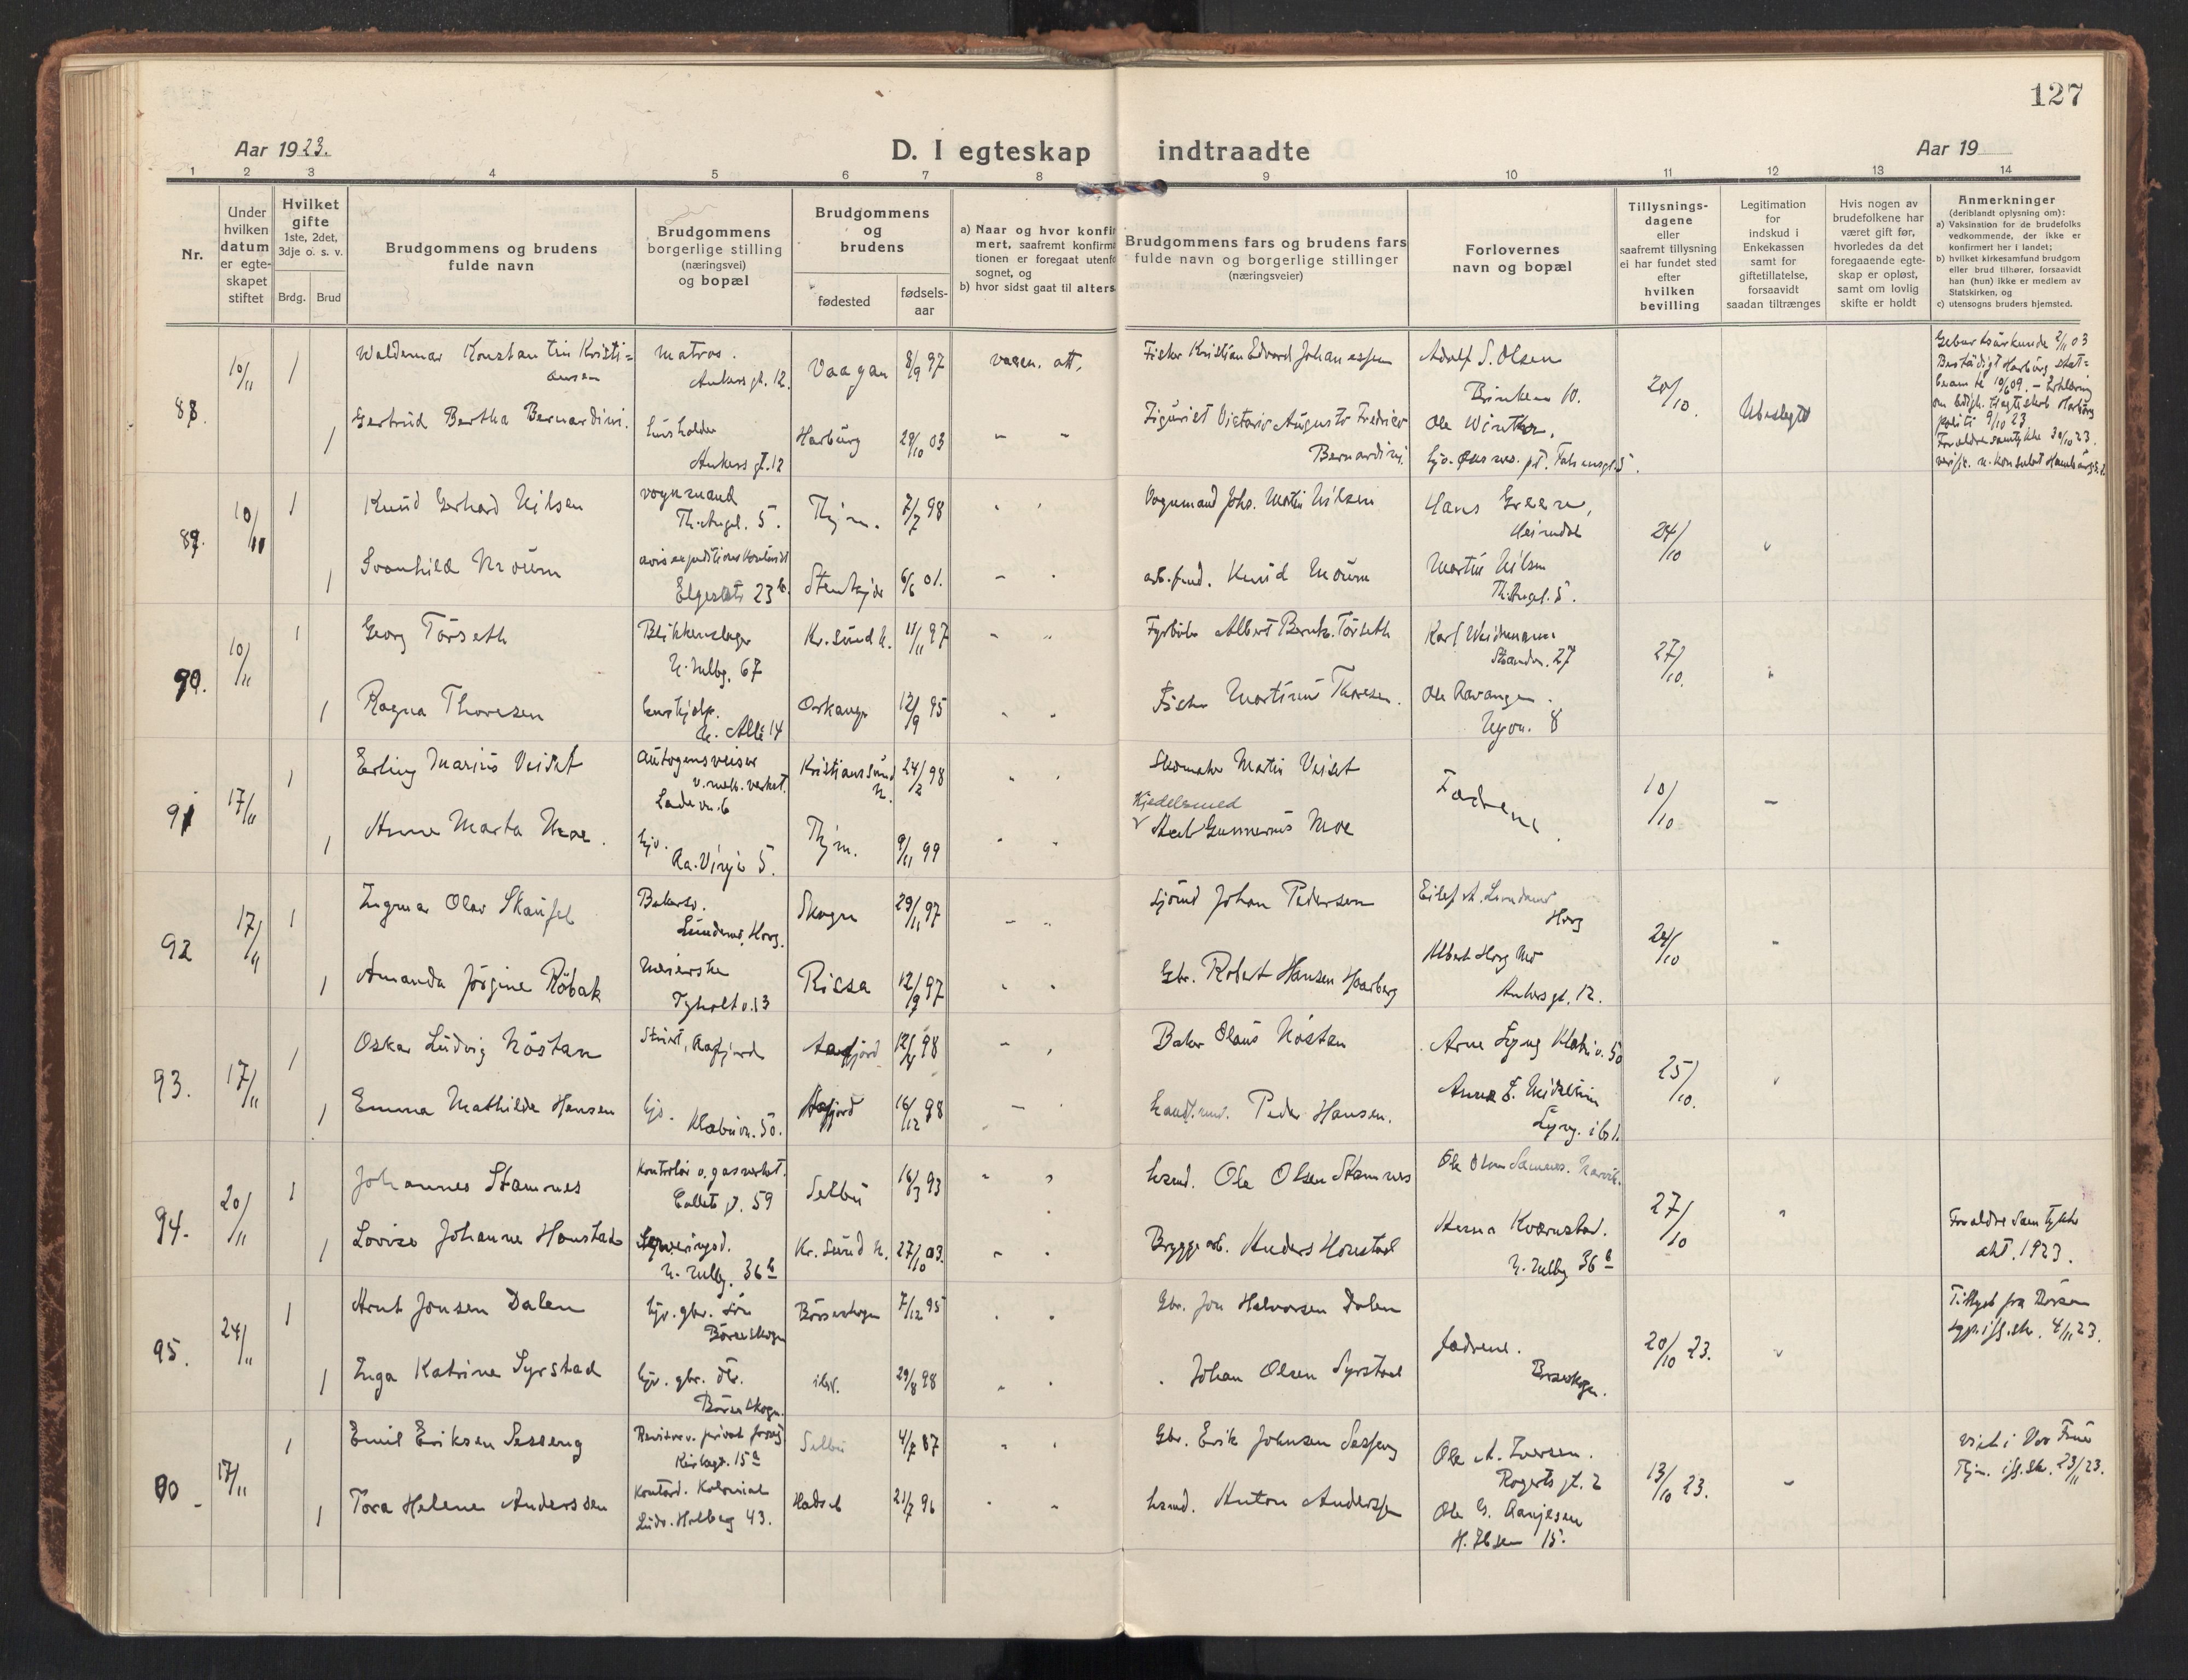 127
Aar 1923.
D. I egteskap indtraadte
Aar 19
1 2 3 4 5 6 7 8 9 10 11 12 13 14
Nr.
Under
hvilken
datum
er egte-
skapet
stiftet
Hvilket
gifte
1ste, 2det,
3dje o. s. v.
Brdg. Brud
Brudgommens og brudens
fulde navn
Brudgommens
borgerlige stilling
(næringsvei)
og bopæl
Brudgommens
og
brudens
fødested
fødsels-
aar
a) Naar og hvor konfir
mert, saafremt konfirma
tionen er foregaat utenfo
sognet, og
b) hvor sidst gaat til alters
Brudgommens fars og brudens fars
fulde navn og borgerlige stillinger
(næringsveier)
Forlovernes
navn og bopæl
Tillysnings-
dagene
eller
saafremt tillysning
ei har fundet sted
efter
hvilken
bevilling
Legitimation
for
indskud i
Enkekassen
samt for
giftetillatelse,
forsaavidt
saadan tiltrænges
Hvis nogen av
brudefolkene har
været gift før,
hvorledes da det
foregaaende egte-
skap er opløst,
samt om lovlig
skifte er holdt
Anmerkninger
(deriblandt oplysning om):
a) Vaksination for de brudefolks
vedkommende, der ikke er
konfirmert her i landet;
b) hvilket kirkesamfund brudgom
eller brud tilhører, forsaavidt
han (hun) ikke er medlem av
Statskirken, og
c) utensogns bruders hjemsted.
88. 10/11 1 Waldemar Konstantin Kristi=
ansen
matros.
Ankers gt. 12.
Vaagan 8/9 97
Fisker Kristian Edvard Johanessen
Adolf S. Olsen
Brinken 10.
20/10.
Ubeslegtet
1 Gertrud Bertha Bernardini.
husholder
Ankers gt. 12
Harburg 29/10 03
Figurist Victorio Augusto Frederico
Bernardini.
Ole Winther.
89. 10/11 1 Knud Gerhard Nilsen
vognmand
Th.Angel. 5.
Thjm. 7/7 98
Vognmand Johs. Martin Nilsen
Hans Green,
Heimdal
24/10
1 Svanhild Moum
Elgesetr 23 b.
Stenkjær 6/6 01.
arb.fmd. Knud Moum
Martin Nilsen
Th.Angel. 5.
90. 10/11 1 Georg Törseth
Blikkenslager
N. Mulbg. 67
Kr.sund N. 11/11 97
Fyrbøter Albert Bernh. Törseth
Karl Weidemann
Strandv. 27
27/10.
1 Ragna Thoresen
hushjelp.
N. Alle 14
Orkanger 12/9 95
Fisker Martinus Thoresen.
Ole Ravangen.
Nyvn. 8
91 17/11 1 Erling Marius Veiset
Autogensveiser
v. mek. verkst.
Ladevn. 6
Kristiansund
N. 24/2 98
Skomaker Martin Veiset
Fædrene.
10/10
1 Anna Marta Moe.
hjv.
Thjm. 9/11 99
Kjedelsmed
Gunnerius Moe
92 17/11 1 Ingmar Olav Skaufel
Bakersv.
Lundemo, Horg.
Skogn 29/11 97
Johan Pedersen
Eilef A. Lundemo
Horg
24/10
1 Amanda Jörgine Röbak
Meierske
Tyholtv. 13
Rissa 12/9 97
Gbr. Robert Hansen Haarberg
Albert Horg Mo
Ankers gt. 12.
93. 17/11 1 Oskar Ludvig Nöstan
Aafjord
Aafjord 12/4 98
Baker Olaus Nöstan
Arne Lyng Klæbuv. 50
25/10.
1 Emma Mathilde Hansen
hjv.
Klæbuvn. 50.
Aafjord 16/12 98
Peder Hansen.
94. 20/11 1 Johannes Stamnes
Kontrolør v. gasverket.
Collets gt. 59
Selbu 16/3 93
Ole Olsen Stamnes
Ole Olsen Stamnes. Narvik.
27/10
1 Lovise Johanne Honstad
Serveringsd.
N. Mulbg. 36 b
Kr. Sund N. 27/10 03.
Bryggearb. Anders Honstad
Anna Kværnstad.
N. Mulbg 36 b
Forældresamtykke
okt. 1923.
95. 24/11 1 Arnt Jonsen Dalen
hjv. gbr. sön
Börseskogn
Börseskogn 7/12 95
Gbr. Jon Halvorsen Dalen
fædrene.
Börseskogn.
20/10 23.
Tillyst fra Börsen
1 Inga Katrine Syrstad
hjv. gbr. dtr.
Börseskogn.
ibid. 29/8 98
Johan Olsen Syrstad
90 17/11 1 Emil Eriksen Sesseng
Kirkegt. 15 a
Selbu 4/7 87
Gbr. Erik Johnsen Sesseng
Ole A. Iversen.
Rogerts gt. 2
13/10 23.
viet i Vor Frue
Thjm. ifl. skr. 23/11 23.
1 Tora Helene Anderssen
Kontord. Kolonial
Ludv. Holberg 43.
Hadsel 21/7 96
Anton Anderssen
H. Ibsen 15.